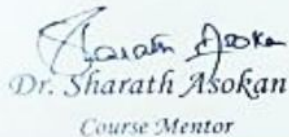 Sharath Asokan
Dr. Sharath Asokan
Course Mentor